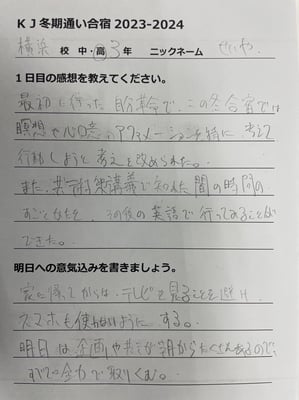 KJ冬期通い合宿 2023-2024
横浜 校 中・高 3年 ニックネーム せいや
1日目の感想を教えてください。
最初に行った自分革命で、この冬合宿では
瞑想や心の窓、アファメーションを特に考えて
行動しようと考えを改められた。
また、共テ特集講義で知れた間の時間の
すごさなどを、その後の英語で行ってみることが
できた。
明日への意気込みを書きましょう。
家に帰ってからは、テレビを見ることを避け
スマホも使わないようにする。
明日は企画や共テが朝からたくさんあるので、
すべて全力で取りくむ。